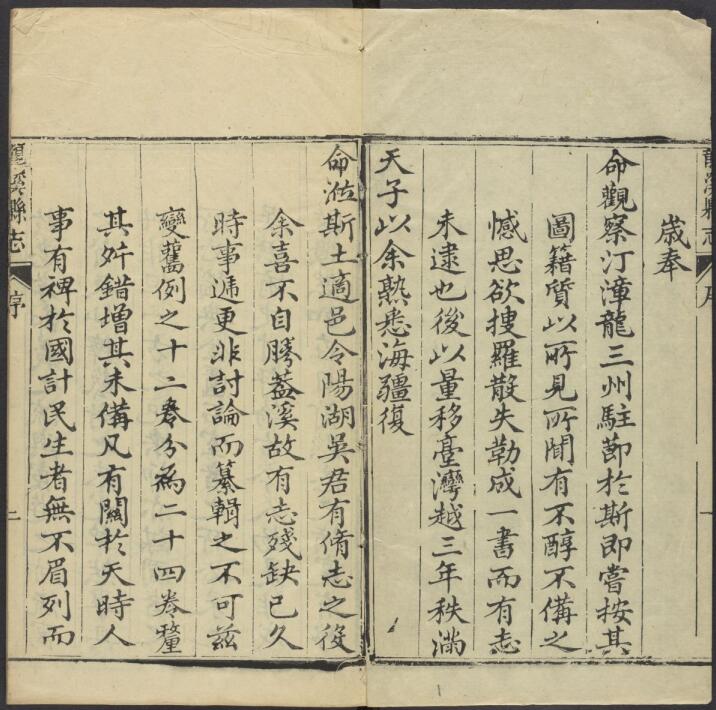 龍溪縣志
序
一
歲奉
命觀察汀漳龍三州駐節於斯即嘗按其
圖籍質以所見所聞有不醇不備之
憾思欲搜羅散失勒成一書而有志
未逮也後以量移臺灣越三年秩滿
天子以余熟悉海疆復
命涖斯土適邑令陽湖吳君有脩志之役
余喜不自勝葢溪故有志殘缺已久
時事遞更非討論而纂輯之不可茲
變舊例之十二卷分為二十四卷釐
其舛錯增其未備凡有關於天時人
事有裨於國計民生者無不眉列而
龍溪縣志
序
二